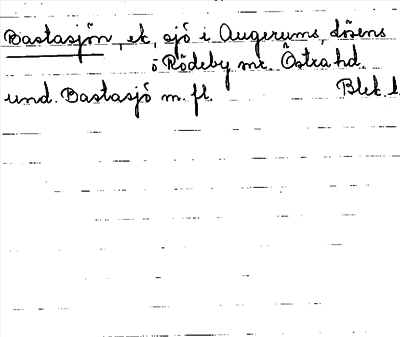 Bastasjön, ek, sjö i Augerums, lösens
o Rödeby snr. Östra hd.
und. Bastasjö m. fl. Blek. l